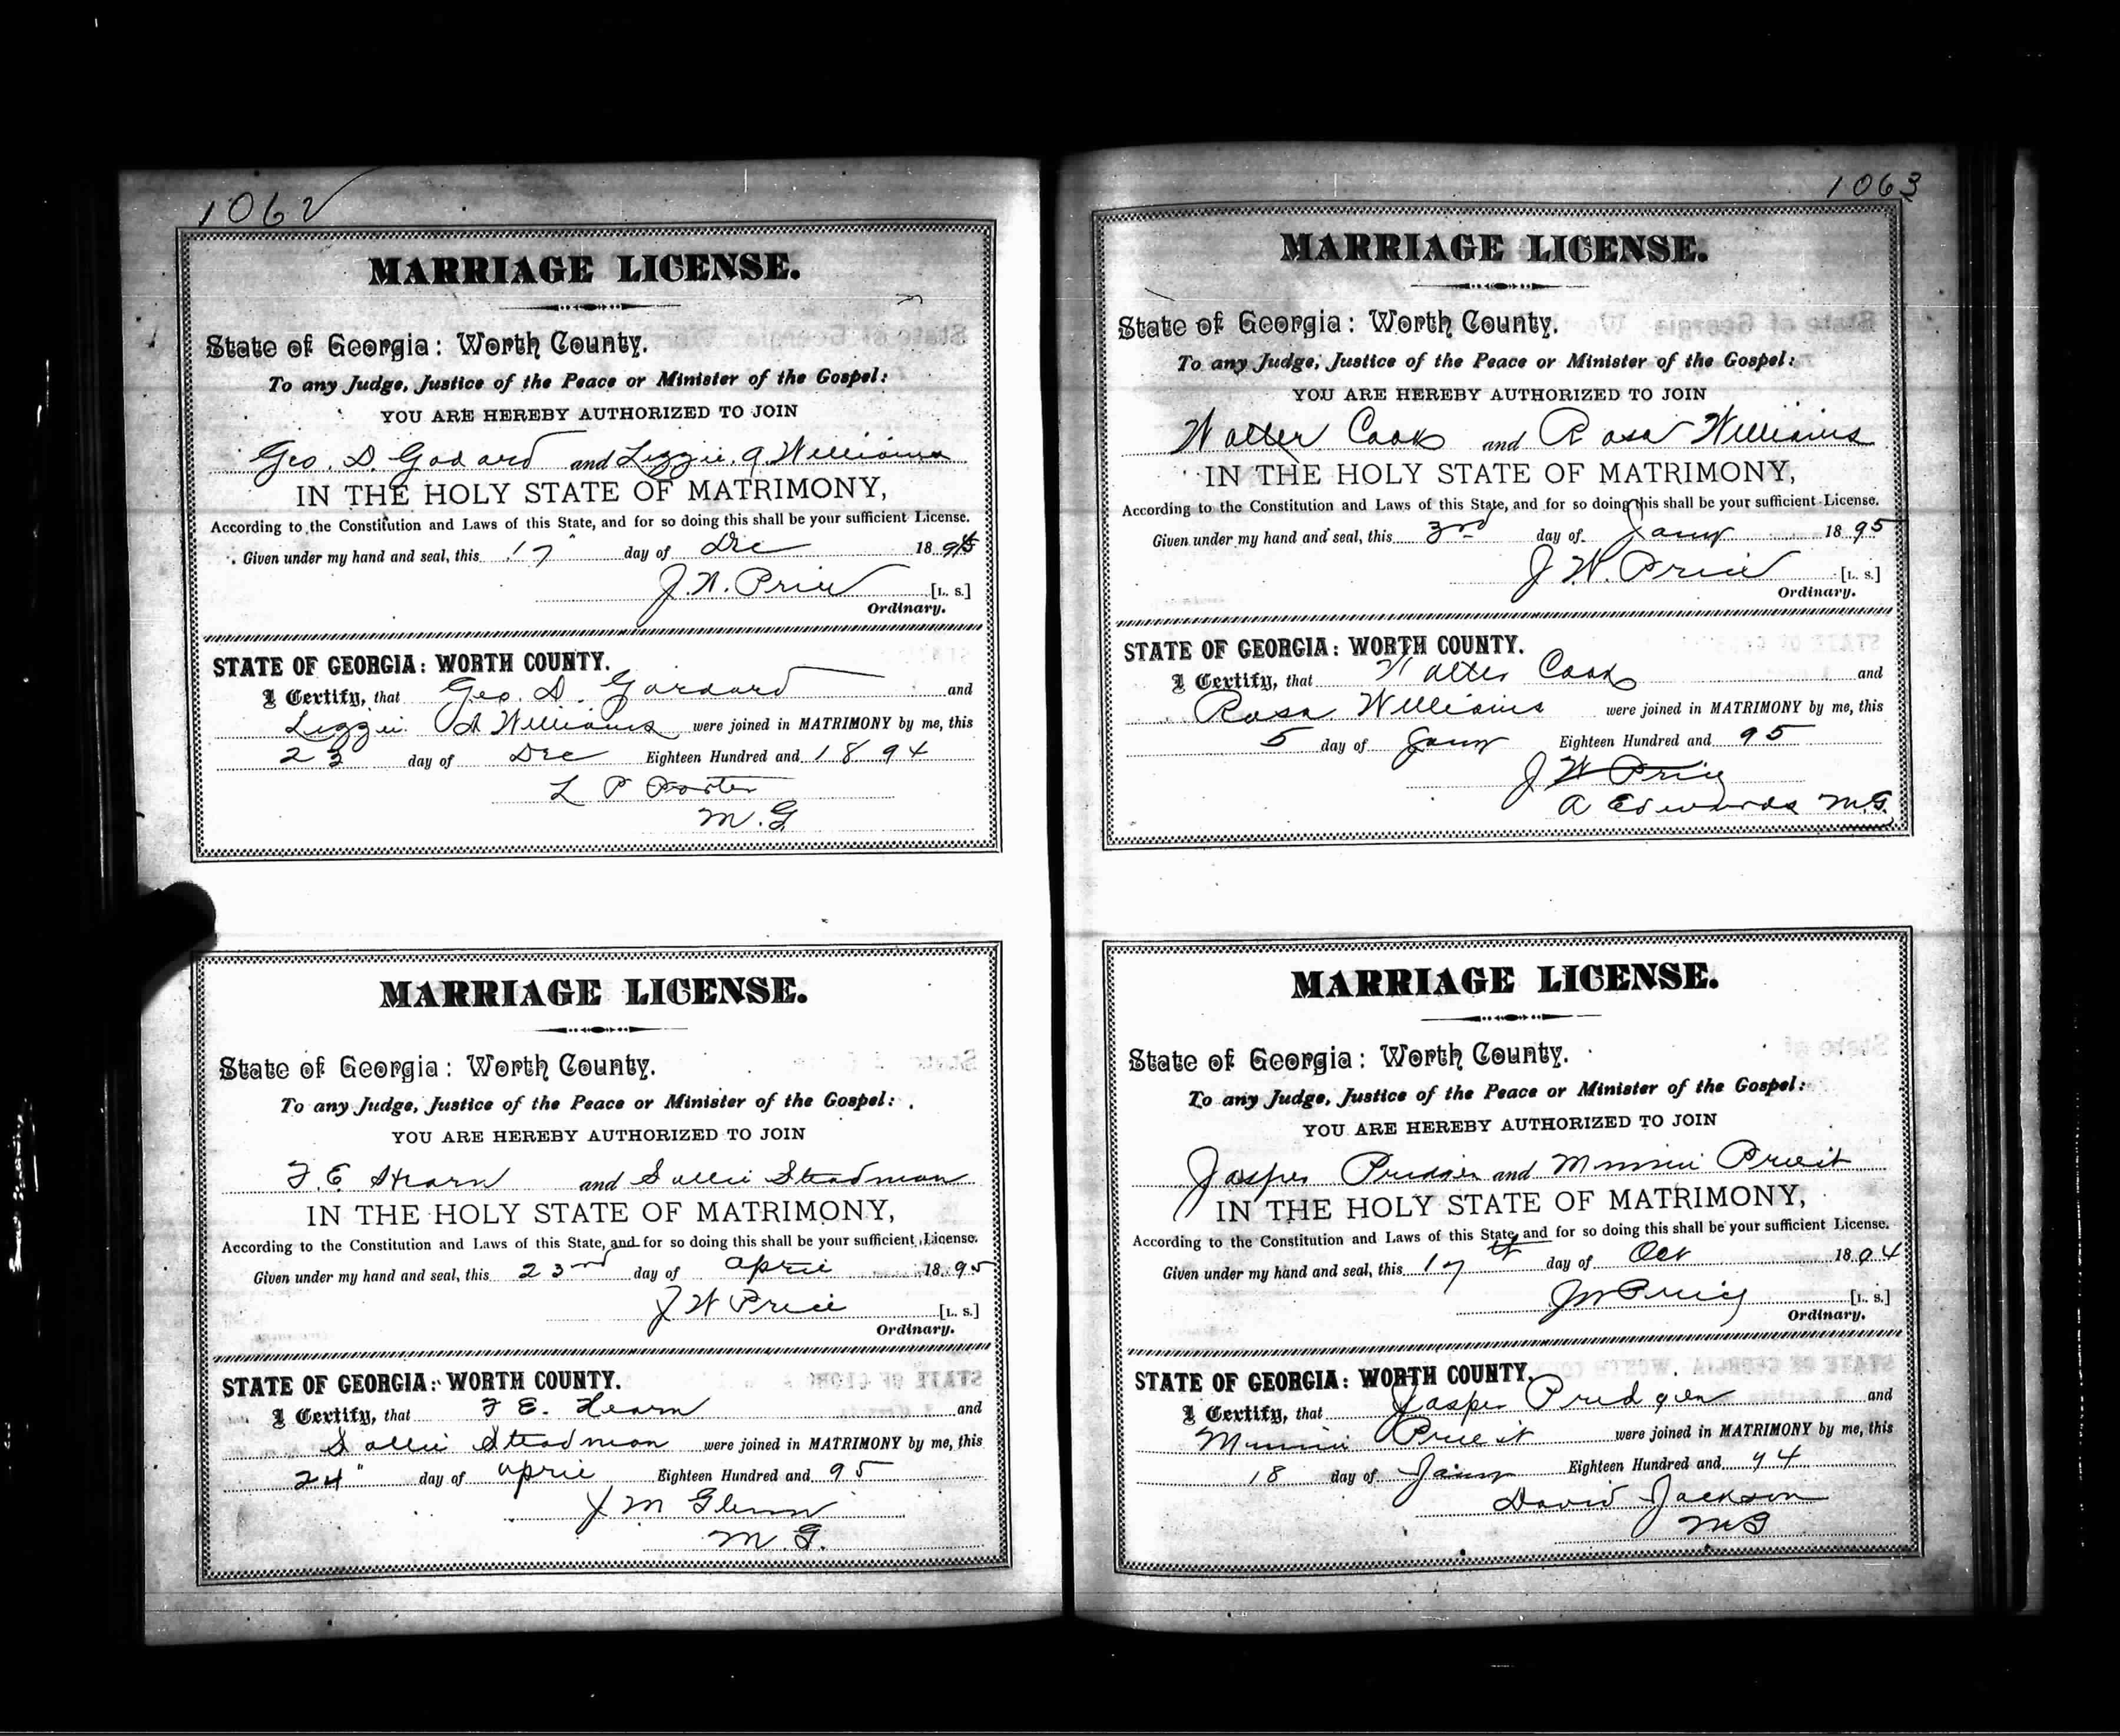 1062
MARRIAGE LICENSE.
State of Georgia: Worth County.
To any Judge, Justice of the Peace or Minister of the Gospel:
YOU ARE HEREBY AUTHORIZED TO JOIN
Geo. D. Godard and Lizzie. A. Williams
IN THE HOLY STATE OF MATRIMONY,
According to the Constitution and Laws of this State, and for so doing this shall be your sufficient License.
Given under my hand and seal, this 17" day of Dec 189
J. W. Price [L. S.]
Ordinary.
STATE OF GEORGIA: WORTH COUNTY.
I Certify, that Geo. D. Gordard and
Lizzie A Williams were joined in MATRIMONY by me, this
23 day of Dec Eighteen Hundred and 1894
L P Porter
M. G
MARRIAGE LICENSE.
State of Georgia: Worth County.
To any Judge, Justice of the Peace or Minister of the Gospel:
YOU ARE HEREBY AUTHORIZED TO JOIN
F. E. Hearn and Sallie Steadman
IN THE HOLY STATE OF MATRIMONY,
According to the Constitution and Laws of this State, and for so doing this shall be your sufficient License.
Given under my hand and seal, this 23rd day of April 1895
J W Price [L. S.]
Ordinary.
STATE OF GEORGIA: WORTH COUNTY.
I Certify, that F E. Hearn and
Sallie Steadman were joined in MATRIMONY by me, this
24" day of April Eighteen Hundred and 95
J M Glenn
M. G.
1063
MARRIAGE LICENSE.
State of Georgia: Worth County.
To any Judge, Justice of the Peace or Minister of the Gospel:
YOU ARE HEREBY AUTHORIZED TO JOIN
Walter Cook and Rosa Williams
IN THE HOLY STATE OF MATRIMONY,
According to the Constitution and Laws of this State, and for so doing this shall be your sufficient License.
Given under my hand and seal, this 3rd day of Jany 1895
J. W. Price [L. S.]
Ordinary.
STATE OF GEORGIA: WORTH COUNTY.
I Certify, that Walter Cook and
Rosa Williams were joined in MATRIMONY by me, this
5 day of Jany Eighteen Hundred and 95
J W Price
A Edwards M.G.
MARRIAGE LICENSE.
State of Georgia: Worth County.
To any Judge, Justice of the Peace or Minister of the Gospel:
YOU ARE HEREBY AUTHORIZED TO JOIN
Jasper Pridgen and Minnie Prueit
IN THE HOLY STATE OF MATRIMONY,
According to the Constitution and Laws of this State, and for so doing this shall be your sufficient License.
Given under my hand and seal, this 17th day of Oct 1894
J W Price [L. S.]
Ordinary.
STATE OF GEORGIA: WORTH COUNTY.
I Certify, that Jasper Pridgen and
Minnie Prueit were joined in MATRIMONY by me, this
18 day of Jany Eighteen Hundred and 94
David Jackson
MG